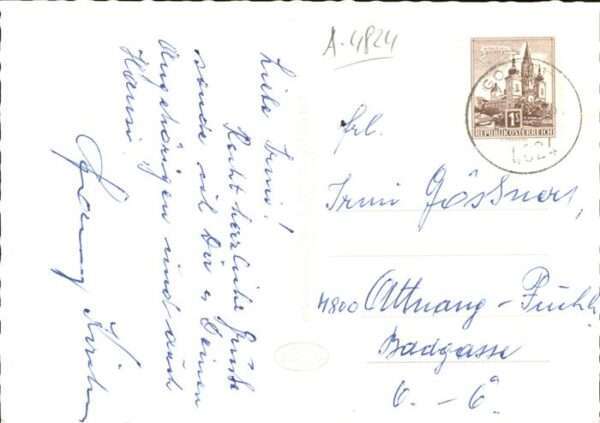 Liebe Irmi!
Recht herzliche Grüße
sende ich Dir u. Deinen
Angehörigen und auch
Hansi
A-4824
GO
4824
1S
REPUBLIK ÖSTERREICH
Frl.
Irmi Gössner
4800 Attnang-Puchh
Badgasse
O.-Ö.